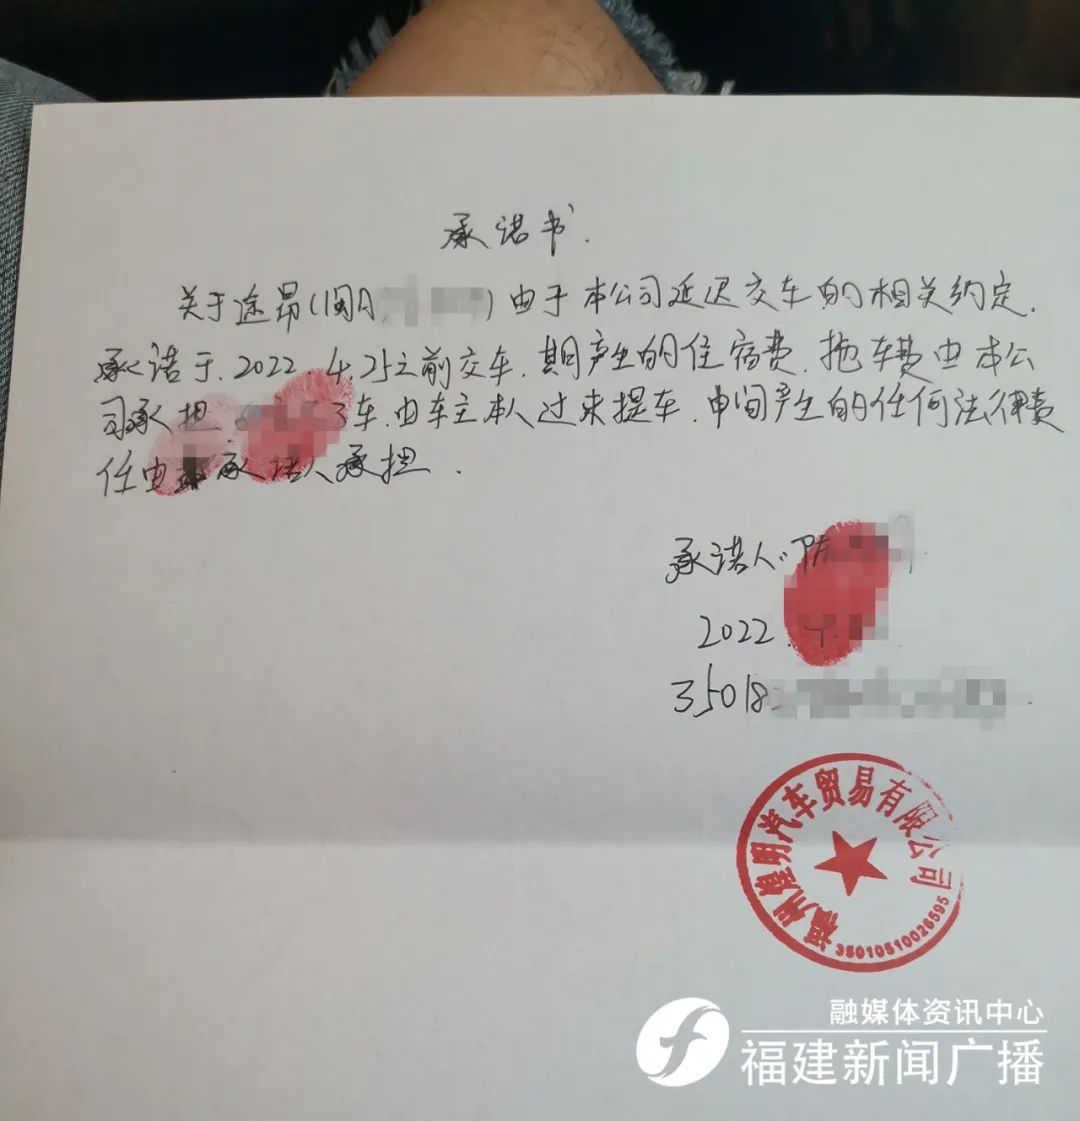 承诺书.
关于途昂(闽A ) 由于本公司延迟交车的相关约定.
承诺于.2022.4.25之前交车.期间产生的住宿费.拖车费由本公
司承担. 3车.由车主本人过来提车.中间产生的任何法律责
任由 承 人承担.
承诺人:陈
2022.4.
350182
福州煌明汽车贸易有限公司
35010510026595
融媒体资讯中心
福建新闻广播